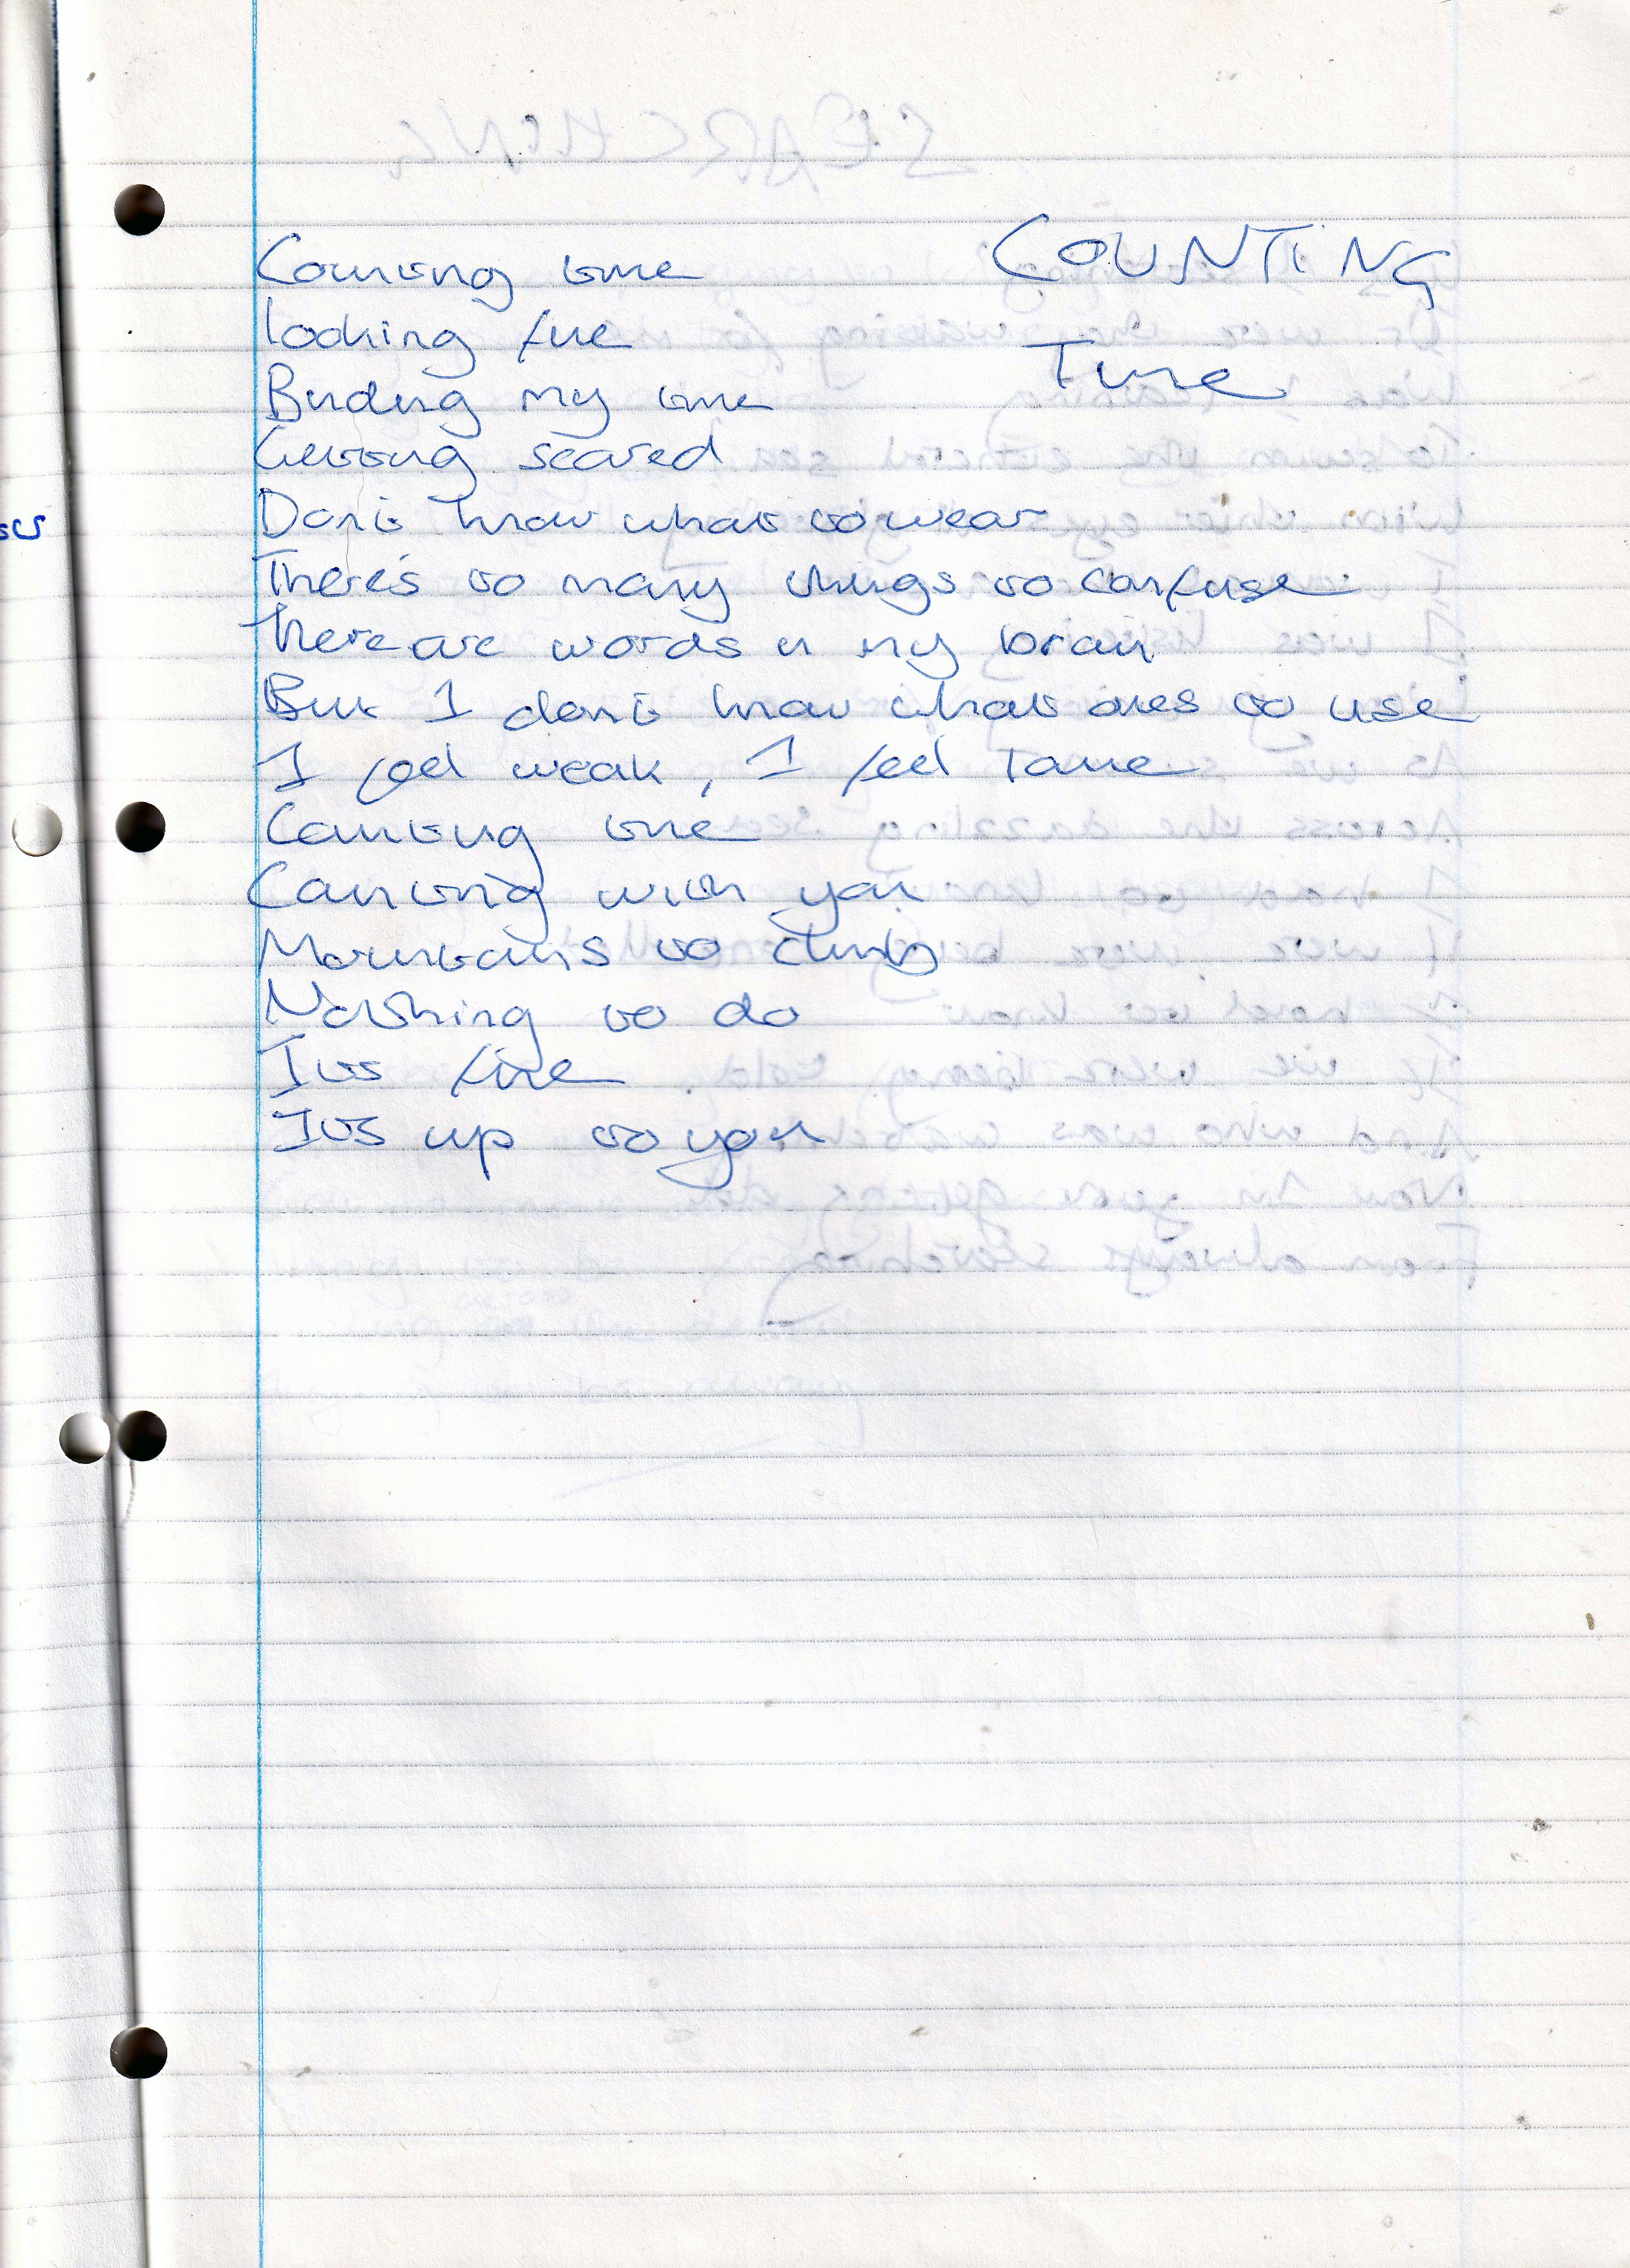 COUNTING
Time
Counting time
looking fine
Binding my time
Getting scared
Don't know what to wear
There's so many things to confuse
There are words in my brain
But I don't know what ones to use
I feel weak, I feel Tame
Counting time
Counting with you
Mountains to climb
Nothing to do
Its fine
Its up to you